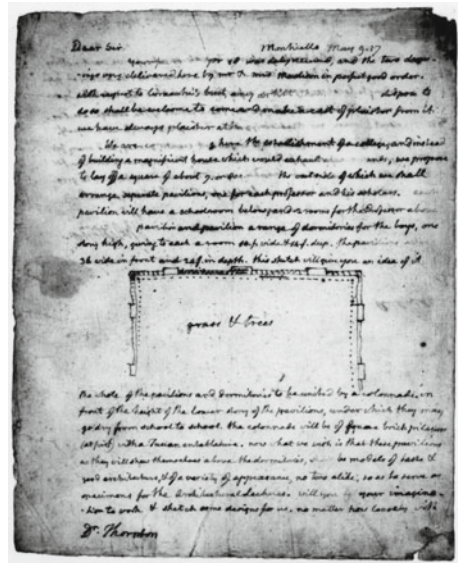 Dear Sir Monticello May 9. 17
Your favor of was duly received, and the two draw-
ings were delivered here by mr & mrs Madison in perfect good order.
with respect to Ceracchi's bust, any artist dispose to
do so shall be welcome to come and make a cast of plaister from it.
we have always plaister at
We are here the establishment of a college, and instead
of building a magnificent house which would exhaust we propose
to lay off a square of about 7. or the outside of which we shall
arrange separate pavilions, one for each professor and his scholars. each
pavilion will have a schoolroom below, and 2 rooms for the Professor above
pavilion and pavilion a range of dormitories for the boys, one
story high, giving to each a room 10 f. wide & 14 f. deep. the pavilions about
36 wide in front and 24 f. in depth. this sketch will give you an idea of it
grass & trees
the whole of the pavilions and dormitories to be united by a colonnade in
front of the height of the lower story of the pavilions, under which they may
go dry from school to school. the colonnade will be of square brick pilasters
(at first) with a Tuscan entablature. now what we wish is that these pavilions
as they will shew themselves above the dormitories, be models of taste &
good architecture, & of a variety of appearance, no two alike, so as to serve as
specimens for the Architectural lectures. will you set your imagina-
tion to work & sketch some designs for us, no matter how loosely with
Dr. Thornton